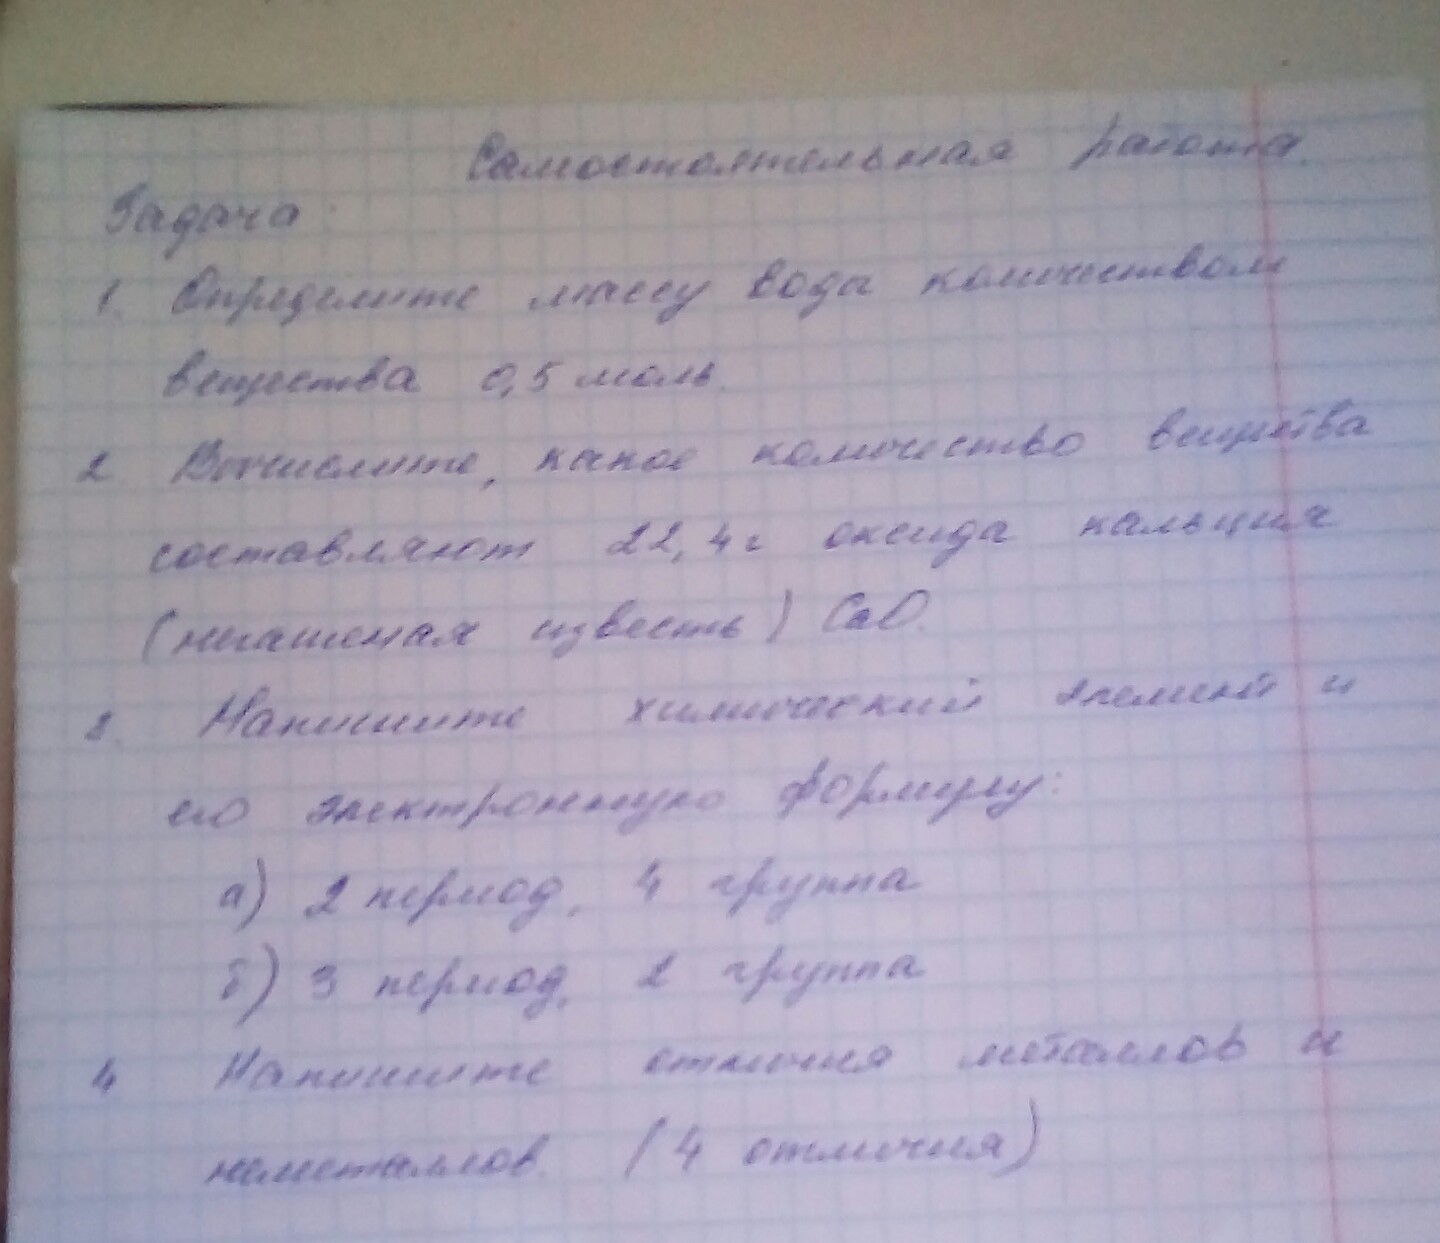 Самостоятельная работа.
Задача
1. Определите массу воды количеством
вещества 0,5 моль.
2 Вычислите, какое количество вещества
составляют 22,4 г оксида кальция
(негашеная известь) CaO.
3. Напишите химический элемент и
его электронную формулу:
а) 2 период, 4 группа
б) 3 период, 2 группа
4 Напишите отличия металлов и
неметаллов. (4 отличия)